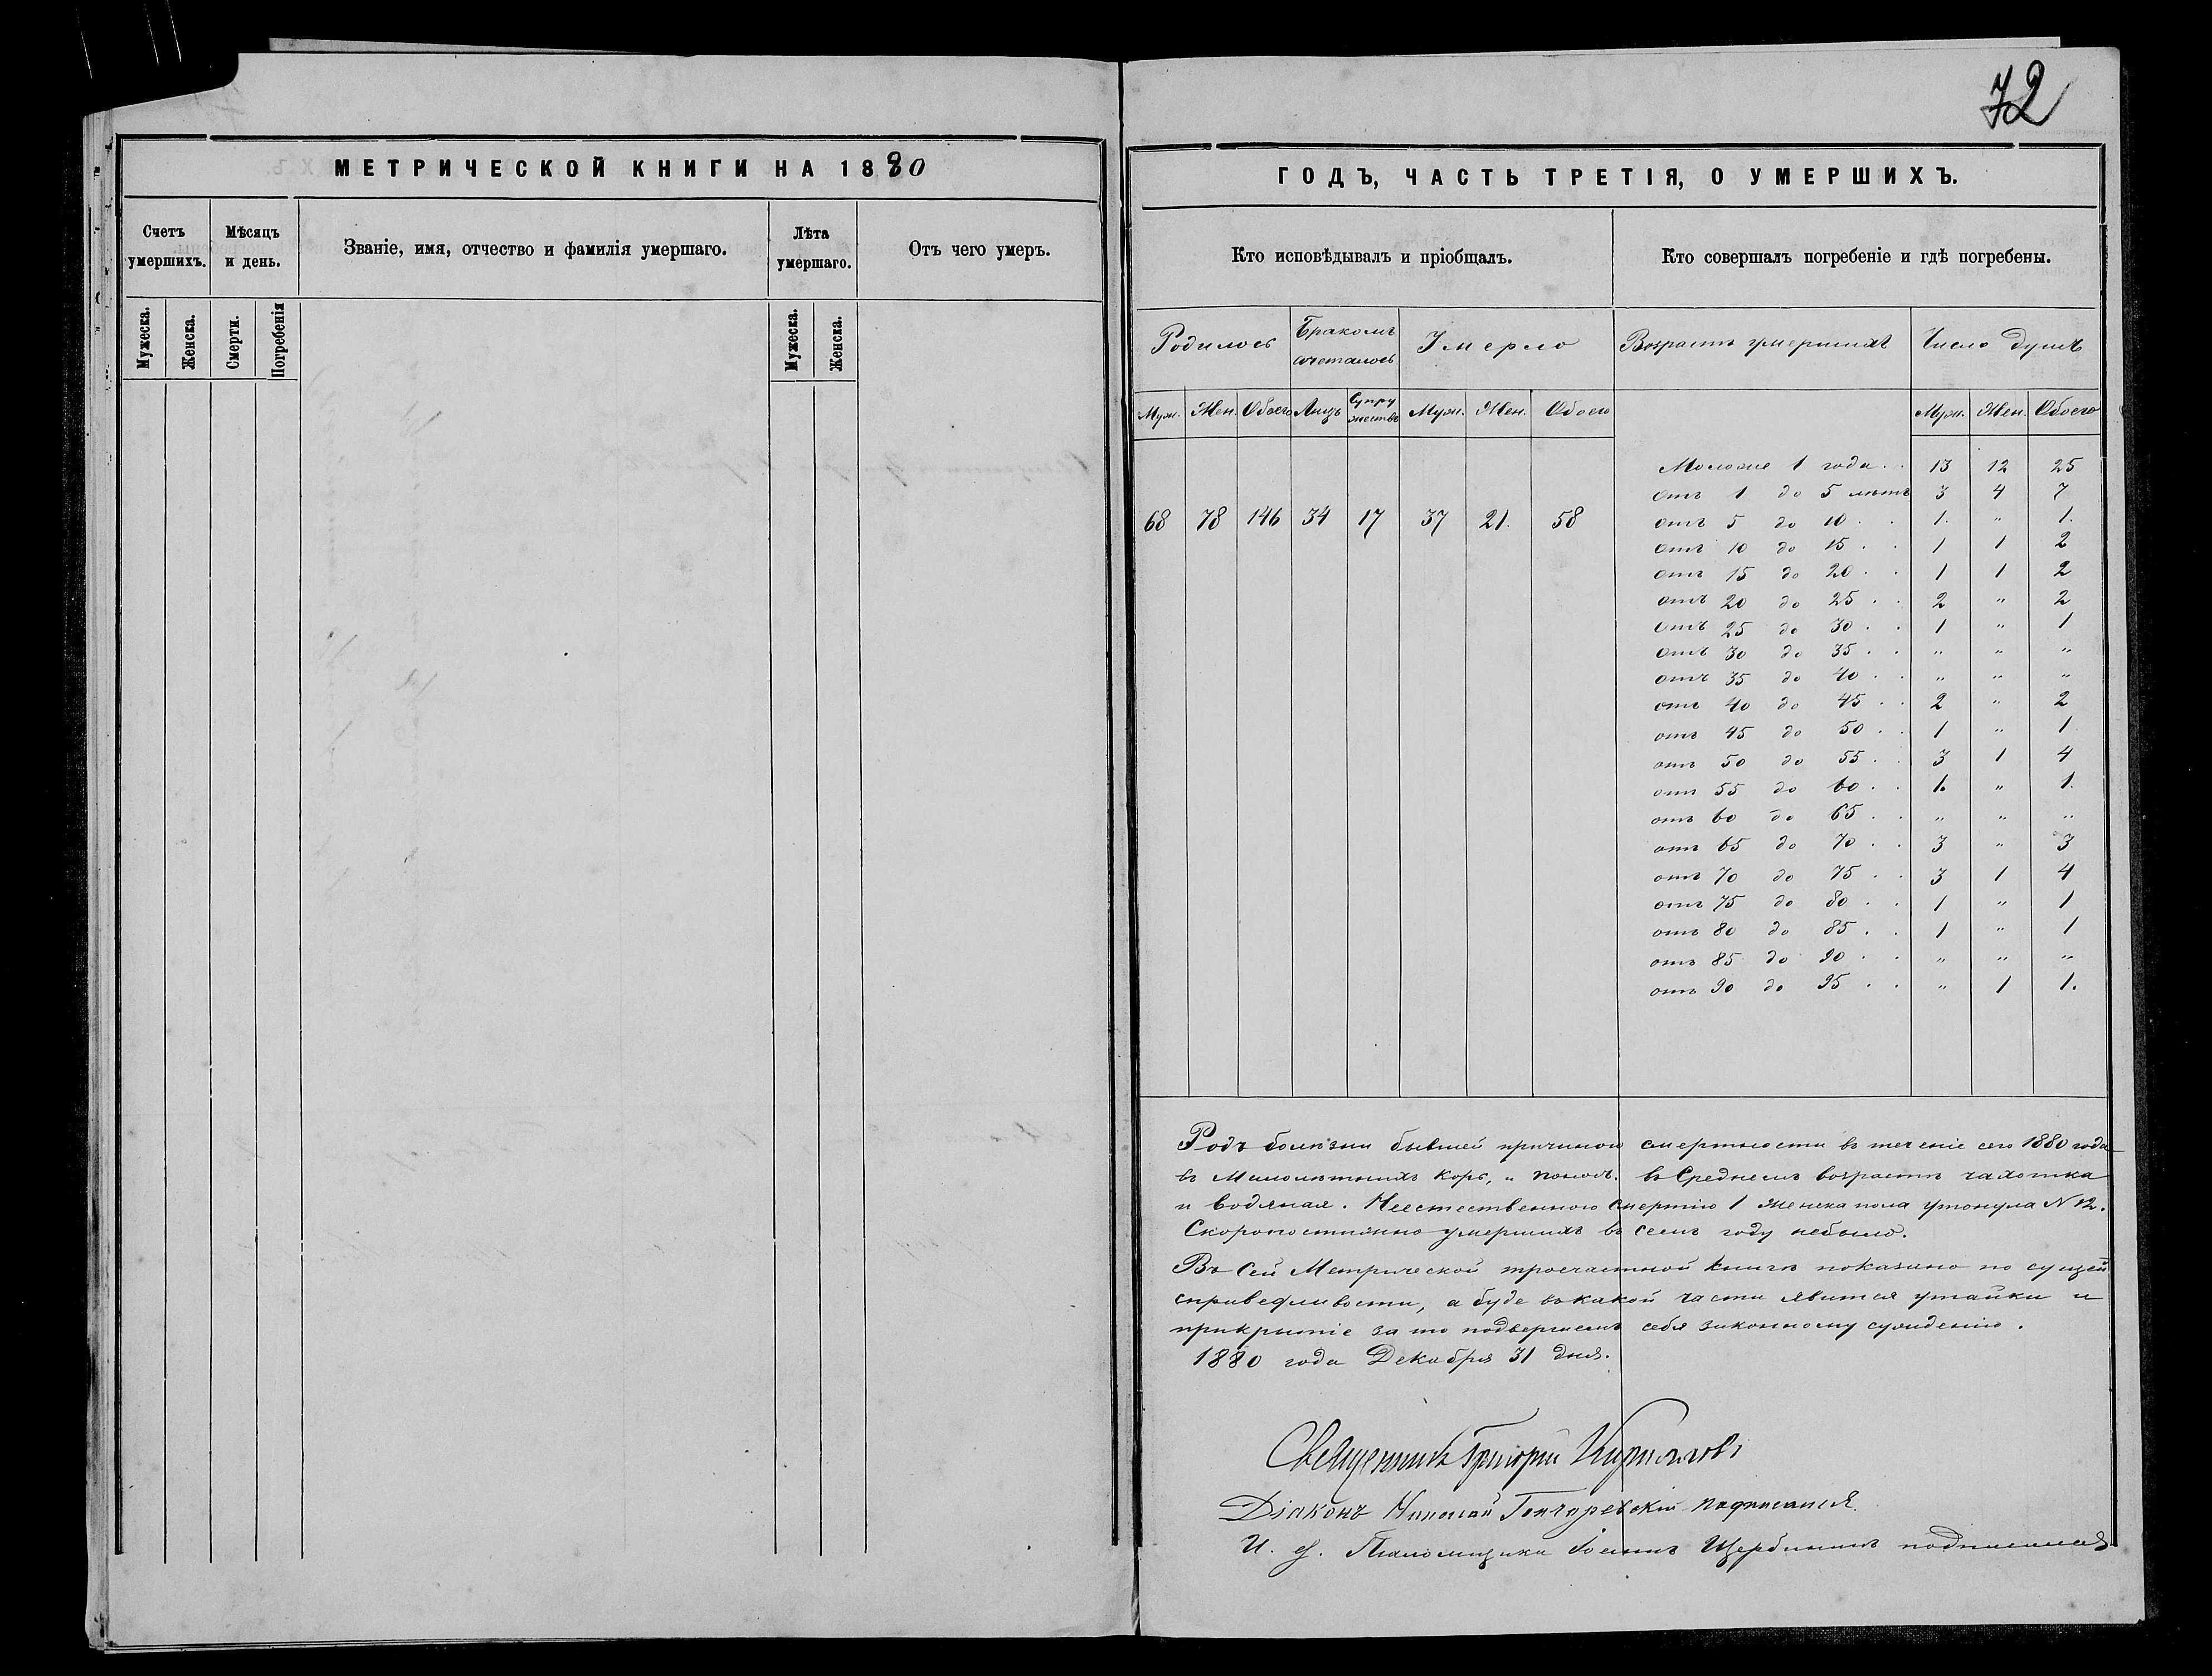 72
МЕТРИЧЕСКОЙ КНИГИ НА 1880
ГОДЪ, ЧАСТЬ ТРЕТІЯ, О УМЕРШИХЪ.
Счетъ умершихъ.
Мѣсяцъ и день.
Званіе, имя, отчество и фамилія умершаго.
Лѣта умершаго.
Отъ чего умеръ.
Мужеска.
Женска.
Смерти.
Погребенія
Мужеска.
Женска.
Кто исповѣдывалъ и пріобщалъ.
Кто совершалъ погребеніе и гдѣ погребены.
Родилось
Бракомъ сочеталось
Умерло
Возрастъ умершихъ
Число душъ
Муж. Жен. Обоего Лицъ Супружествъ Муж. Жен. Обоего
Муж. Жен. Обоего
68 78 146 34 17 37 21. 58
Моложе 1 года . . 13 12 25
отъ 1 до 5 лѣтъ 3 4 7
отъ 5 до 10 . . 1. " 1.
отъ 10 до 15 . . 1 1 2
отъ 15 до 20 . . 1 1 2
отъ 20 до 25 . . 2 " 2
отъ 25 до 30 . . 1 " 1
отъ 30 до 35 . . " " "
отъ 35 до 40 . . " " "
отъ 40 до 45 . . 2 " 2
отъ 45 до 50 . . 1 " 1
отъ 50 до 55 . . 3 1 4
отъ 55 до 60 . . 1. " 1.
отъ 60 до 65 . . " " "
отъ 65 до 70 . . 3 " 3
отъ 70 до 75 . . 3 1 4
отъ 75 до 80 . . 1 " 1
отъ 80 до 85 . . 1 " 1
отъ 85 до 90 . . " " "
отъ 90 до 95 . . " 1 1.
Родъ болѣзни бывшей причиною смертности въ теченіе сего 1880 года
въ Малолѣтнихъ Корь, и понос. въ Среднемъ возрастѣ чахотка
и водяная. Неестественною смертію 1 женска пола утонула N 12.
Скоропостижно умершихъ въ семъ году небыло.
Въ сей Метрической троечастной книгѣ показано по сущей
справедливости, а буде въ какой части явится утайки и
прикрытіе за то подвергаемъ себя законному сужденію.
1880 года Декабря 31 дня.
Священникъ Григорій
Діаконъ Николай Гончаревскій подписался
И. д. Псаломщика Іоаннъ Щербининъ подписался